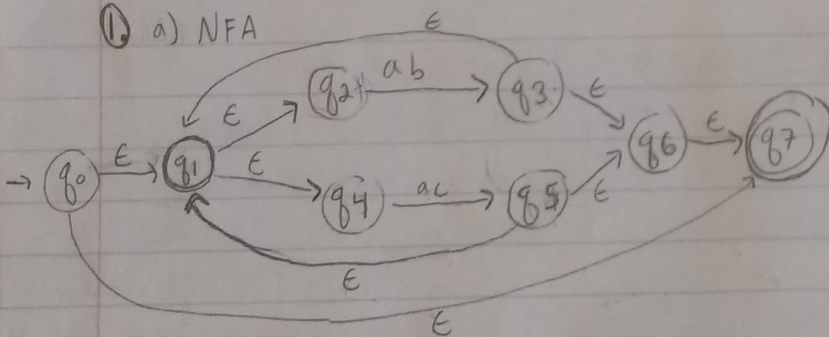 1. a) NFA
ε
q2 ab q3
ε ε
q0 ε q1 q6 ε q7
ε
q4 ac q5 ε
ε
ε